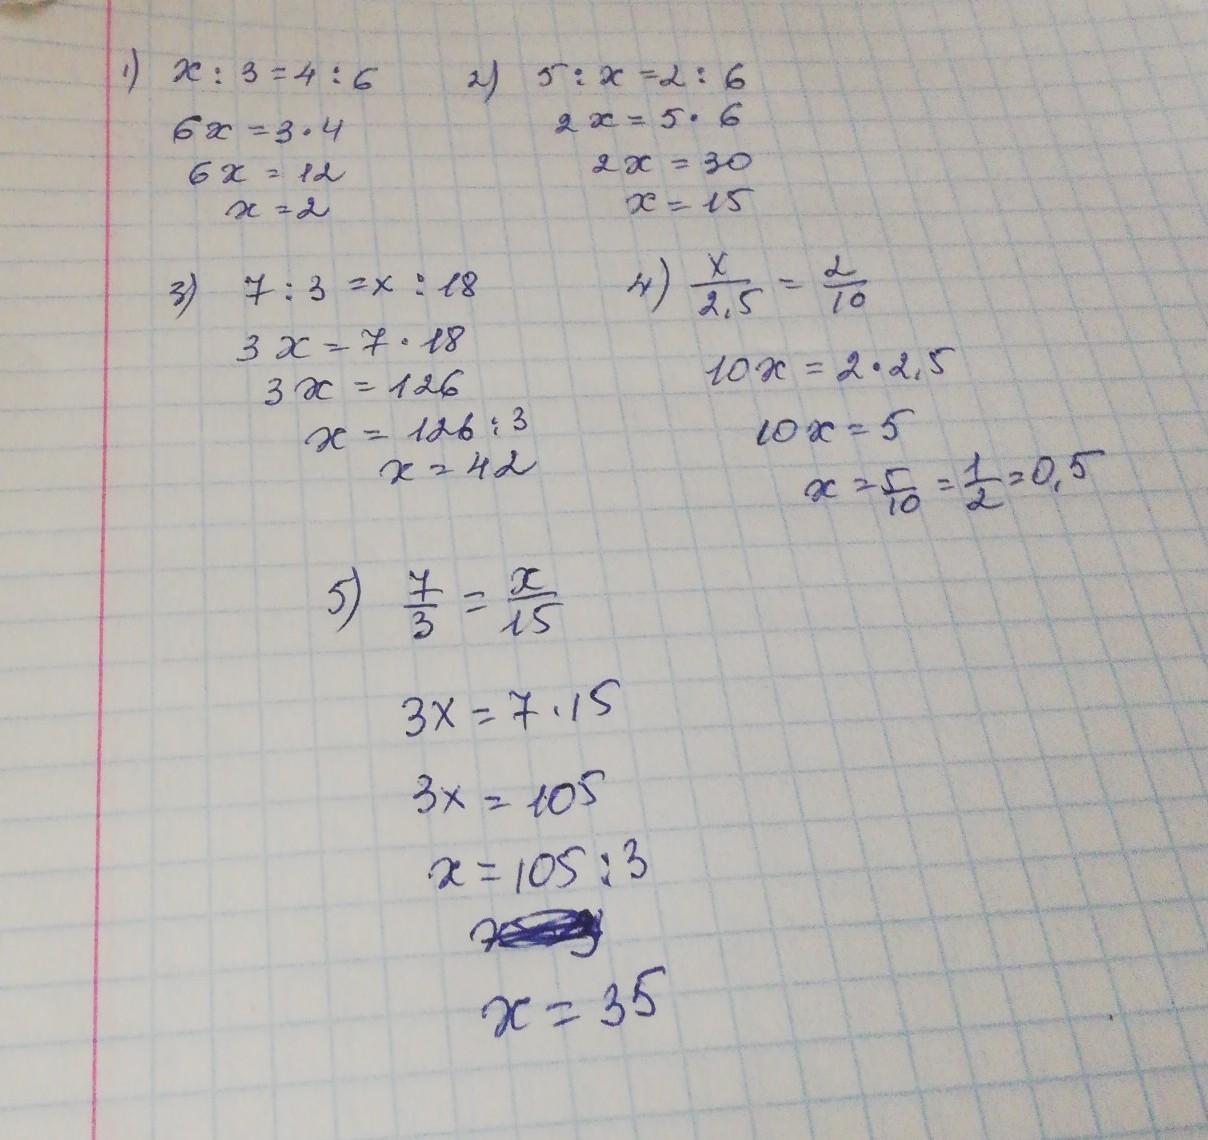 1) x : 3 = 4 : 6
6x = 3 · 4
6x = 12
x = 2
2) 5 : x = 2 : 6
2x = 5 · 6
2x = 30
x = 15
3) 7 : 3 = x : 18
3x = 7 · 18
3x = 126
x = 126 : 3
x = 42
4) x/2,5 = 2/10
10x = 2 · 2,5
10x = 5
x = 5/10 = 1/2 = 0,5
5) 7/3 = x/15
3x = 7 · 15
3x = 105
x = 105 : 3
x = 35